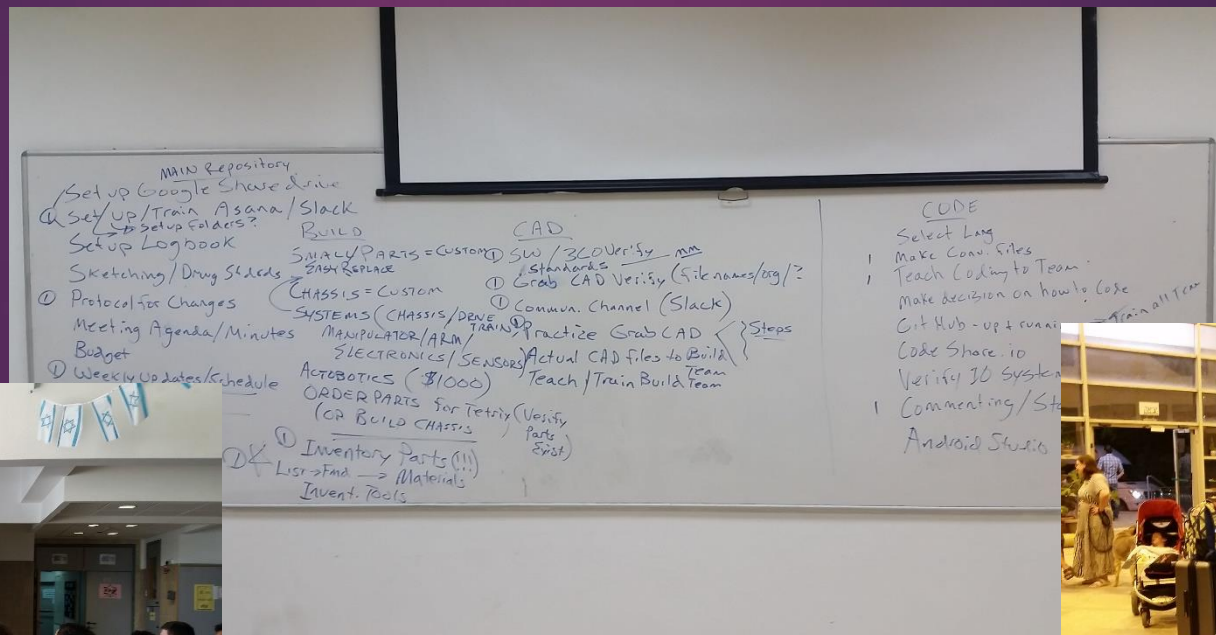 MAIN Repository
Set up Google Share drive
① Set/up/Train Asana/Slack
→ Setup Folders?
Setup Logbook
Sketching/Drwg
① Protocol for Changes
Meeting Agenda/Minutes
Budget
① Weekly Updates/Schedule
BUILD
SMALL/PARTS = CUSTOM
EASY REPLACE
CHASSIS = CUSTOM
SYSTEMS (CHASSIS/DRIVE TRAIN/
MANIPULATOR/ARM/
ELECTRONICS/SENSORS)
ACTOBOTICS ($1000)
ORDER PARTS for Tetrix (Verify
Parts
Exist)
(OR BUILD CHASSIS)
① Inventory Parts (!!!)
① List → Find → Materials
Invent. Tools
CAD
① SW / Verify mm
Standards
① Grab CAD Verify (file names/org/?
① Commun. Channel (Slack)
① Practize Grab CAD
Steps
Actual CAD files to Build Team
Teach/Train Build Team
CODE
Select Lang
1 Make Conv. files
1 Teach Coding to Team
Make decision on how to Code
Git Hub - up + runni → Train all Team
Code Share.io
Verify IO System
1 Commenting/
Android Studio